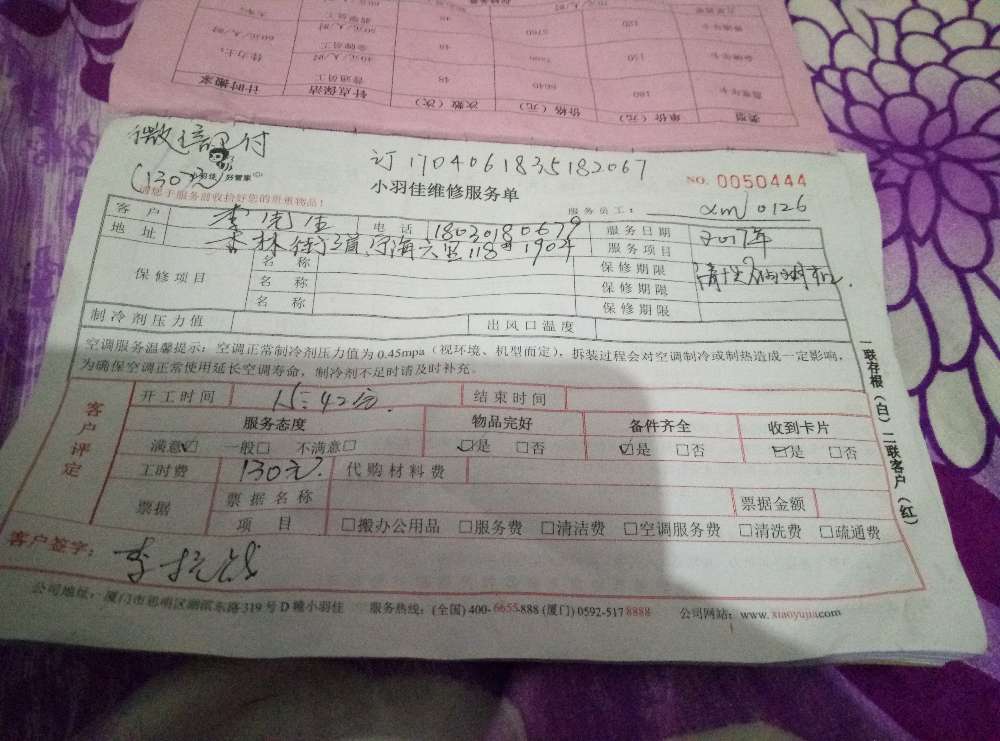 类型
单价(元)
价格(元)
次数(次)
针点保洁
计时搬家
180
48
普通员工
150
48
金牌员工
120
5760
48
微信支付
(130元)
订1704061835182067
小羽佳 好管家
小羽佳维修服务单
NO. 0050444
请您于服务前收拾好您的贵重物品!
服务员工: xm 0126
客 户 李先生 电 话 18020180679 服务日期 2017年
地 址 118# 1904 服务项目
保修项目 名 称 保修期限
名 称 保修期限
名 称 保修期限
制冷剂压力值 出风口温度
空调服务温馨提示:空调正常制冷剂压力值为0.45mpa(视环境、机型而定),拆装过程会对空调制冷或制热造成一定影响,
为确保空调正常使用延长空调寿命,制冷剂不足时请及时补充。
一联存根(白)二联客户(红)
客户评定
开工时间 15:42分. 结束时间
服务态度 物品完好 备件齐全 收到卡片
满意☑ 一般□ 不满意□ ☑是 □否 ☑是 □否 ☑是 □否
工时费 130元. 代购材料费
票据 票据名称 票据金额
项 目 □搬办公用品 □服务费 □清洁费 □空调服务费 □清洗费 □疏通费
客户签字:
公司地址:厦门市思明区湖滨东路319号D幢小羽佳 服务热线:(全国)400-6655-888 (厦门)0592-517 8888 公司网站:www.xiaoyujia.com